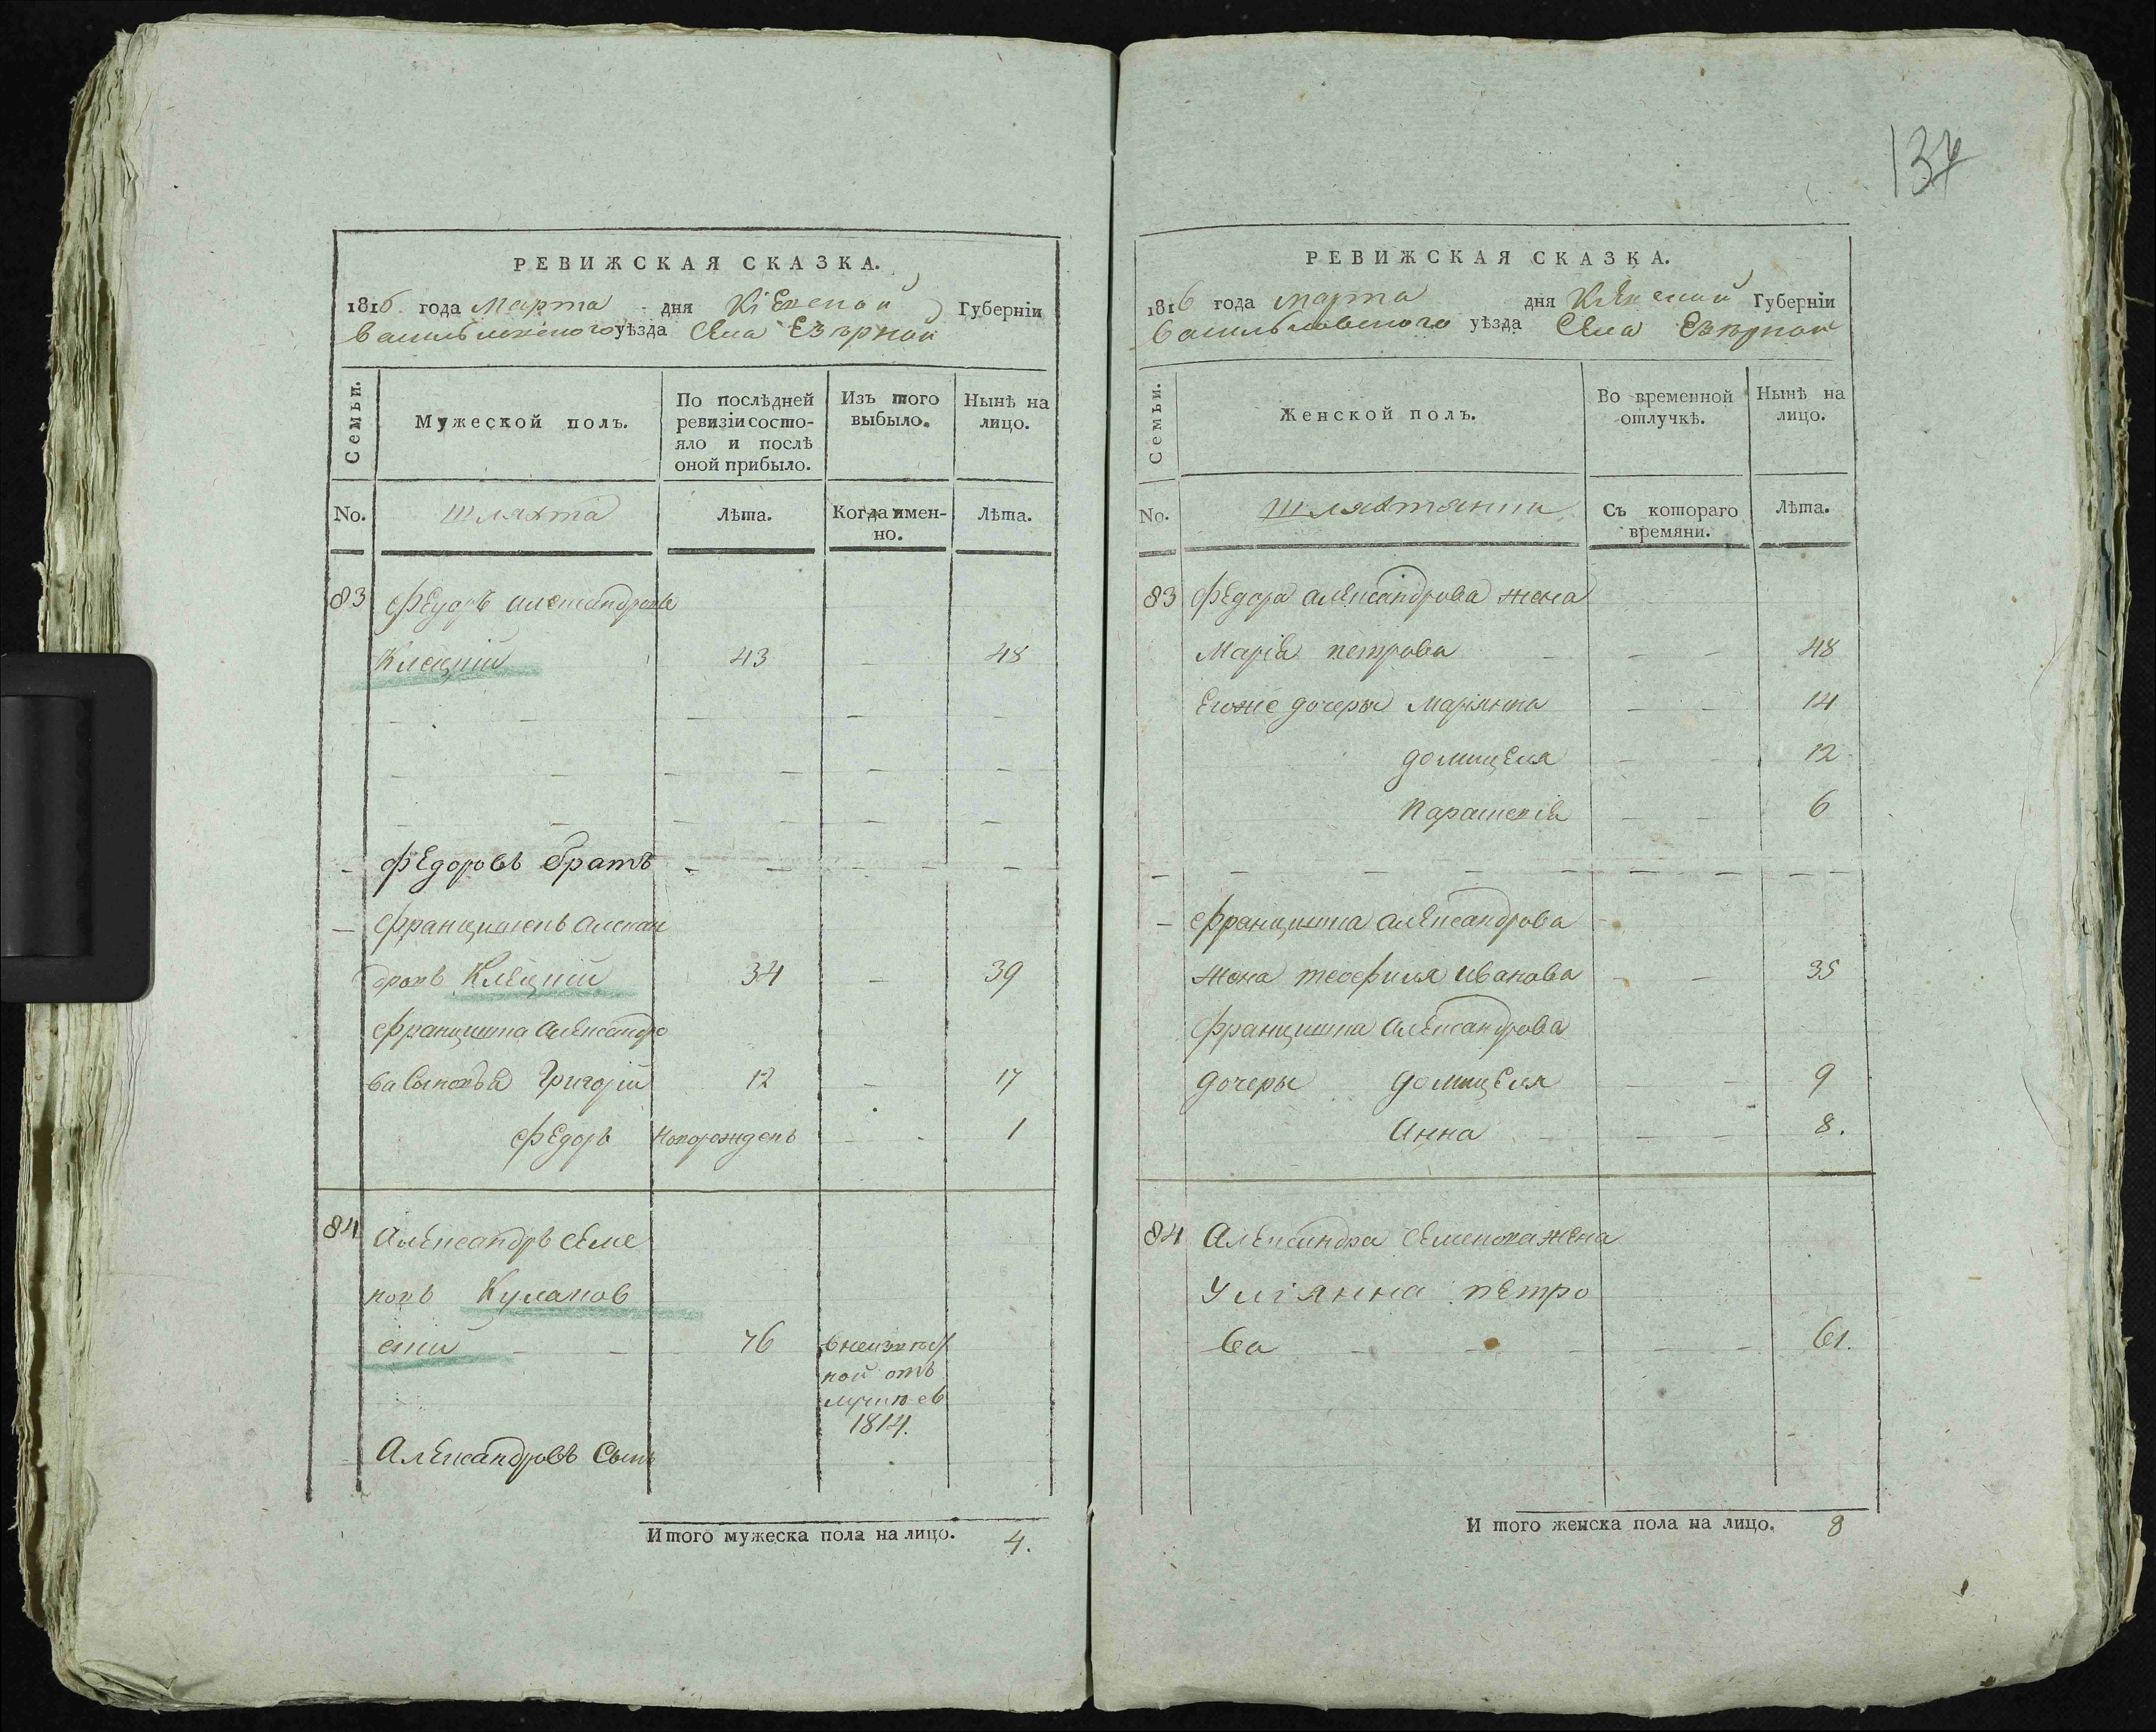 137
РЕВИЖСКАЯ СКАЗКА.
1816 года Марта дня Кіевской Губерніи
Васильковского уѣзда Села Езѣрной
Семьи.
Мужеской полъ.
По послѣдней ревизіи состо-
яло и послѣ
оной прибыло.
Изъ того
выбыло.
Нынѣ на
лицо.
No.
Шляхта
Лѣта.
Когда имен-
но.
Лѣта.
83 Федоръ Александровъ
Клецкій 43 48
Федоровъ братъ
Францишекъ Алексан
дровъ Клецкій 34 39
Францишка Александро
ва Сыновья Григорій 12 17
Федоръ новорожденъ 1
84 Александръ Семе
новъ Кулаков
скій 76
отъ
1814.
Александровъ Сынъ
Итого мужеска пола на лицо. 4.
РЕВИЖСКАЯ СКАЗКА.
1816 года марта дня Кіевской Губерніи
Васильковского уѣзда Села Езѣрной
Семьи.
Женской полъ.
Во временной
отлучкѣ.
Нынѣ на
лицо.
No.
Шляхтянки
Съ котораго
времяни.
Лѣта.
83 Федора Александрова жена
Марія петрова 48
Егоже дочеры Маріянна 14
домицеля 12
Параскевія 6
Францишка Александрова
жона теофиля Иванова 35
Францишка Александрова
дочеры домицеля 9
Анна 8.
84 Александра Семенова жена
Улiянна петро
ва 61.
И того женска пола на лицо. 8